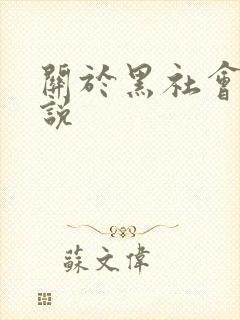 關於黑社會
說
蘇文偉